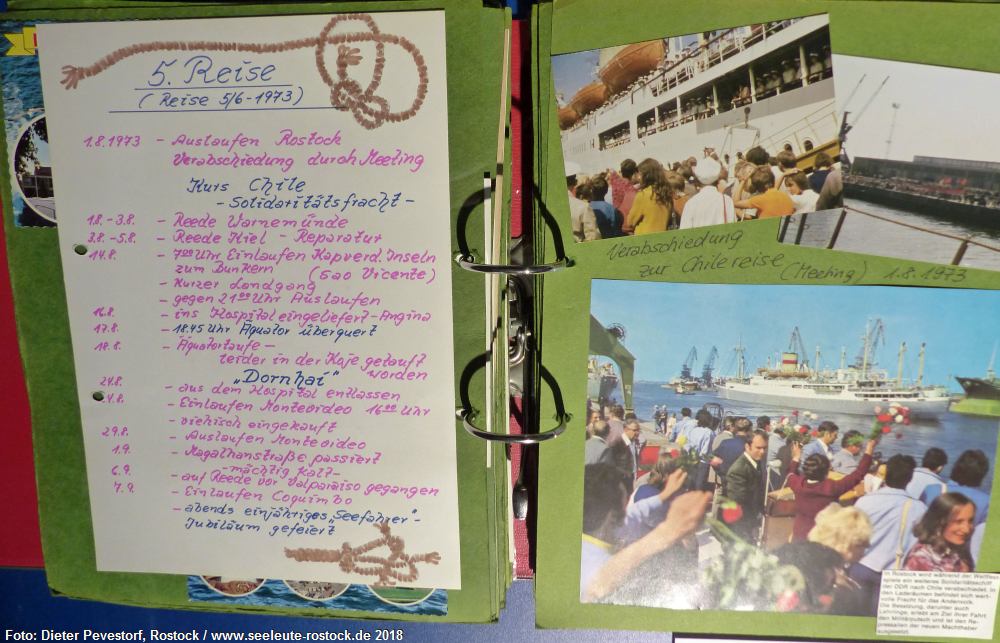 5. Reise
(Reise 5/6-1973)
1.8.1973 - Auslaufen Rostock
Verabschiedung durch Meeting
Kurs Chile
- Solidaritätsfracht -
1.8. - 3.8. - Reede Warnemünde
3.8. - 5.8. - Reede Kiel - Reparatur
14.8. - 7⁰⁰ Uhr Einlaufen Kapverd. Inseln
zum Bunkern (Sao Vicente)
- Kurzer Landgang
- gegen 21⁰⁰ Uhr Auslaufen
16.8. - ins Hospital eingeliefert - Angina
17.8. - 18.45 Uhr Äquator überquert
18.8. - Äquatortaufe -
leider in der Koje getauft
worden
"Dornhai"
24.8. - aus dem Hospital entlassen
- Einlaufen Montevideo 16⁰⁰ Uhr
- viehisch eingekauft
29.8. - Auslaufen Montevideo
1.9. - Magalhanstraße passiert
- mächtig kalt -
6.9. - auf Reede vor Valparaiso gegangen
7.9. - Einlaufen Coquimbo
- abends einjähriges "Seefahrer"-
Jubiläum gefeiert
Verabschiedung
zur Chilereise (Meeting) 1.8.1973
In Rostock wird während der Weltfest-
spiele ein weiteres Solidaritätsschiff
der DDR nach Chile verabschiedet. In
den Laderäumen befindet sich wert-
volle Fracht für das Andenvolk.
Die Besatzung, darunter auch
Lehrlinge, erlebt am Ziel ihrer Fahrt
den Militärputsch und ist den Re-
pressalien der neuen Machthaber
ausgesetzt.
Foto: Dieter Pevestorf, Rostock / www.seeleute-rostock.de 2018